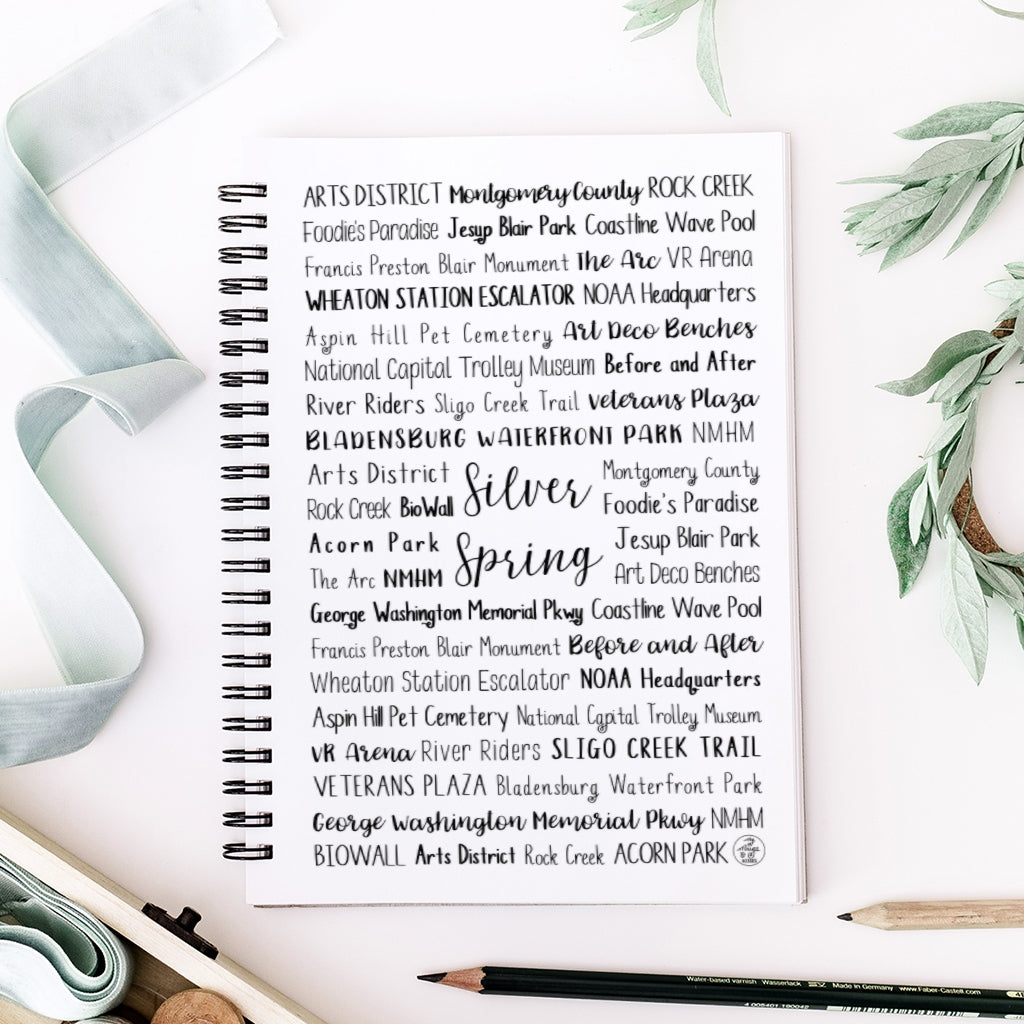 ARTS DISTRICT Montgomery County ROCK CREEK
Foodie's Paradise Jesup Blair Park Coastline Wave Pool
Francis Preston Blair Monument The Arc VR Arena
WHEATON STATION ESCALATOR NOAA Headquarters
Aspin Hill Pet Cemetery Art Deco Benches
National Capital Trolley Museum Before and After
River Riders Sligo Creek Trail Veterans Plaza
BLADENSBURG WATERFRONT PARK NMHM
Arts District Silver Montgomery County
Rock Creek BioWall Foodie's Paradise
Acorn Park Spring Jesup Blair Park
The Arc NMHM Art Deco Benches
George Washington Memorial Pkwy Coastline Wave Pool
Francis Preston Blair Monument Before and After
Wheaton Station Escalator NOAA Headquarters
Aspin Hill Pet Cemetery National Capital Trolley Museum
VR Arena River Riders SLIGO CREEK TRAIL
VETERANS PLAZA Bladensburg Waterfront Park
George Washington Memorial Pkwy NMHM
BIOWALL Arts District Rock Creek ACORN PARK
Water-based varnish Wasserlack Made in Germany www.Faber-Castell.com
4 005401 190042